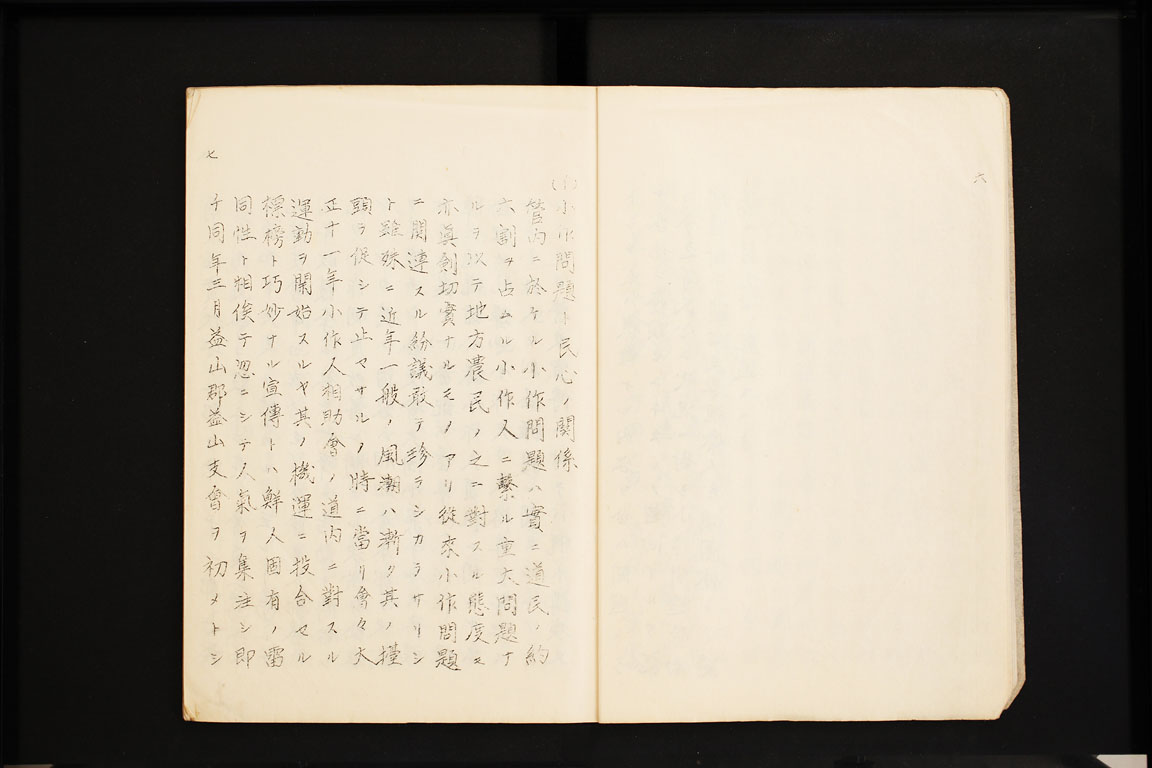 六
小作問題ト民心ノ関係
管内ニ於ケル小作問題ハ實ニ道民ノ約
六割ヲ占ムル小作人ニ繫ル重大問題ナ
ルヲ以テ地方農民ノ之ニ對スル態度モ
亦真剣切實ナルモノアリ從来小作問題
ニ関連スル紛議敢テ珍ラシカラサリシ
ト雖殊ニ近年一般ノ風潮ハ漸ク其ノ擡
頭ヲ促シテ止マサルノ時ニ當リ會々大
正十一年小作人相助會ノ道内ニ對スル
運動ヲ開始スルヤ其ノ機運ニ投合セル
標榜ト巧妙ナル宣傳トハ鮮人固有ノ雷
同性ト相俟テ忽ニシテ人氣ヲ集注シ即
チ同年三月益山郡益山支會ヲ初メトシ
七